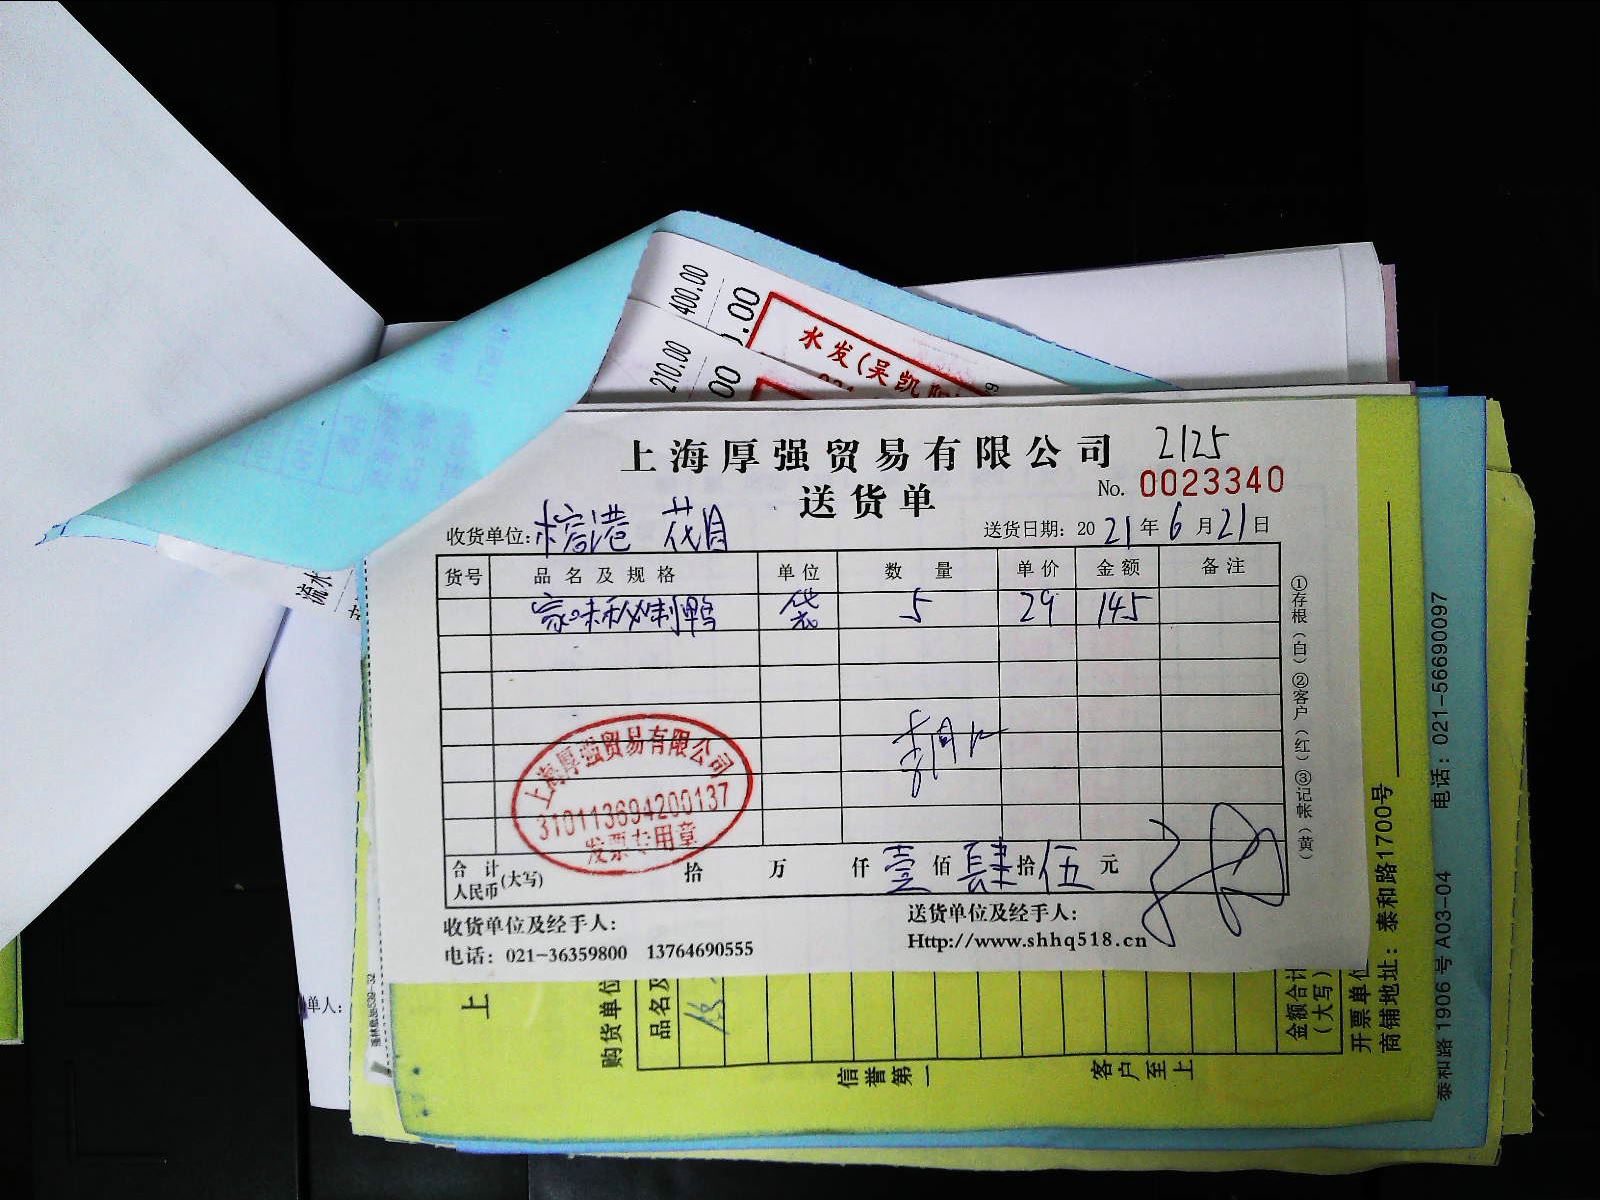 400.00
0.00
水发(吴凯
210.00
00
流水
上海厚强贸易有限公司
2125
送货单
No. 0023340
收货单位:榕港 花月
送货日期: 2021年6月21日
货号 品名及规格 单位 数量 单价 金额 备注
家味秘制鸭 袋 5 29 145
①存根(白)②客户(红)③记帐(黄)
上海厚强贸易有限公司
310113694200137
发票专用章
合计人民币(大写) 拾 万 仟 壹佰 肆拾 伍元
收货单位及经手人:
送货单位及经手人:
电话: 021-36359800 13764690555
Http://www.shhq518.cn
单人:
上
购货单位
品名及
信誉第一
客户至上
金额合计
(大写)
开票单位
商铺地址: 泰和路1700号
泰和路1906号A03-04 电话: 021-56690097